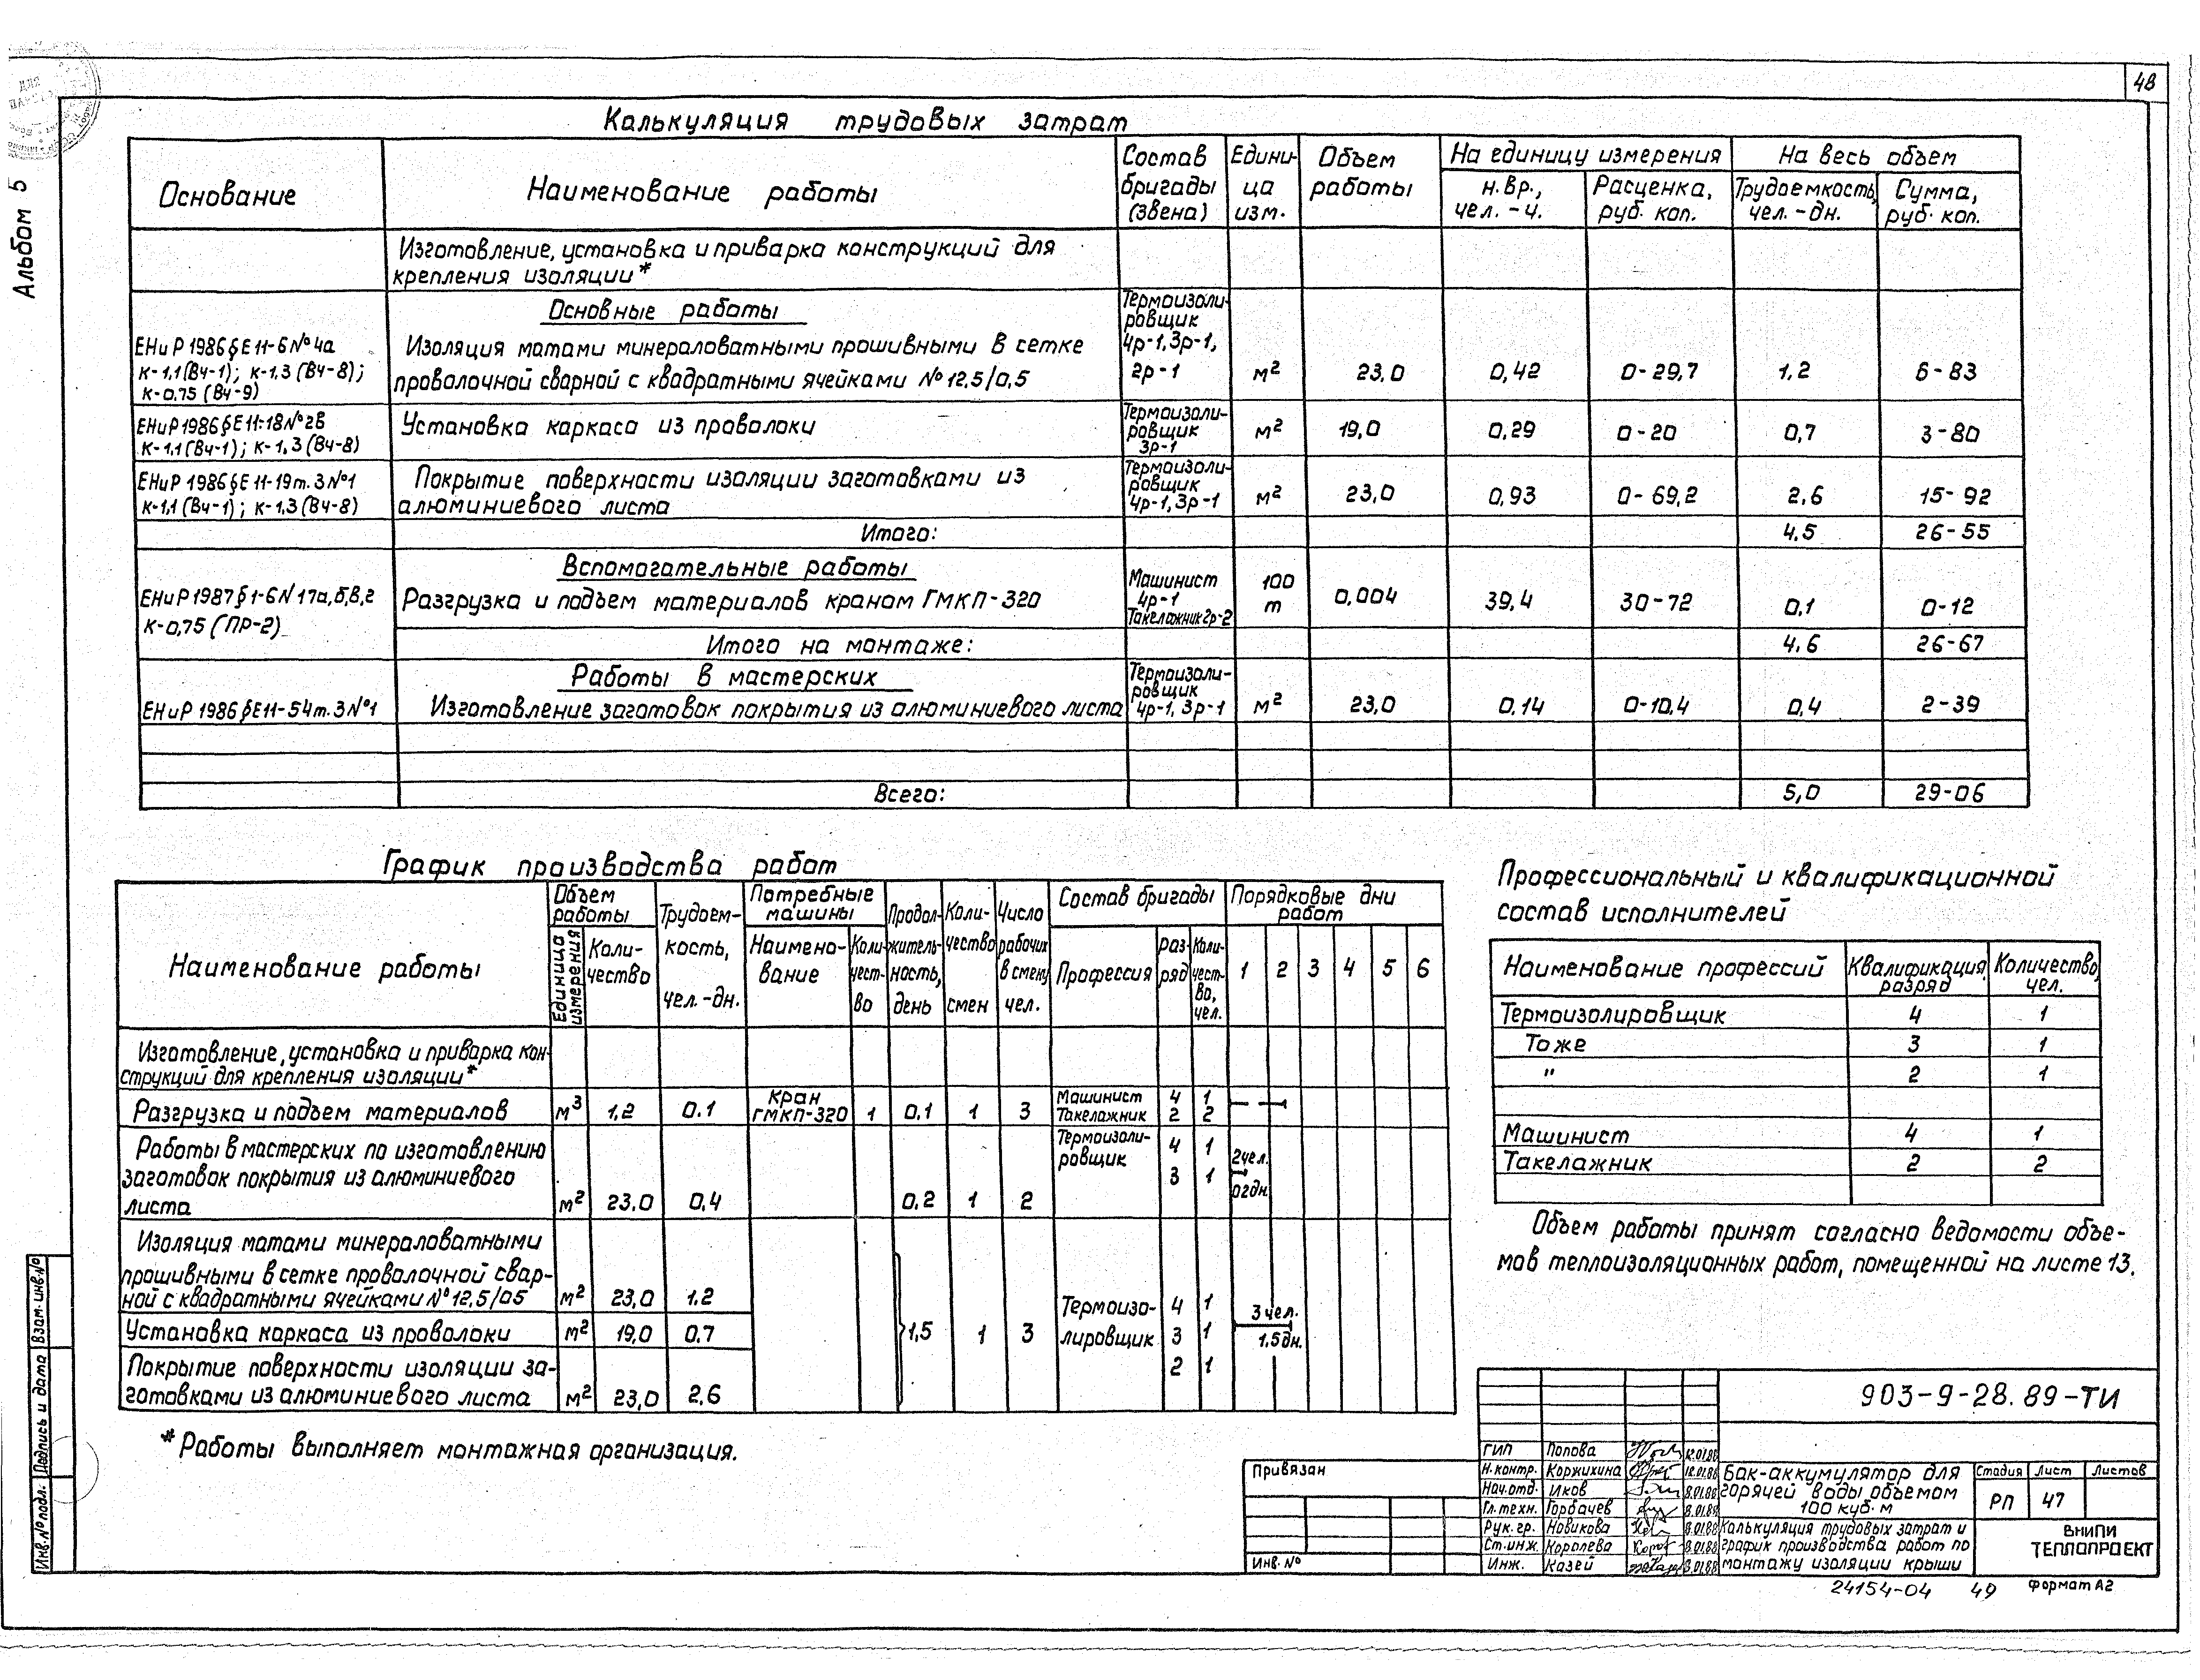 48
Альбом 5
Калькуляция трудовых затрат
Основание
Наименование работы
Состав бригады (звена)
Едини-ца изм.
Объем работы
На единицу измерения
На весь объем
н.вр., чел.-ч.
Расценка, руб. коп.
Трудоемкость, чел.-дн.
Сумма, руб. коп.
Изготовление, установка и приварка конструкций для
крепления изоляции*
Основные работы
ЕНиР 1986 § Е 11-6 №4а
к-1,1 (Вч-1); к-1,3 (Вч-8);
к-0,75 (Вч-9)
Изоляция матами минераловатными прошивными в сетке
проволочной сварной с квадратными ячейками №12,5/0,5
Термоизоли-
ровщик
4р-1, 3р-1,
2р-1
м² 23,0 0,42 0-29,7 1,2 6-83
ЕНиР 1986 § Е 11-18 №2в
к-1,1 (Вч-1); к-1,3 (Вч-8)
Установка каркаса из проволоки
Термоизоли-
ровщик
3р-1
м² 19,0 0,29 0-20 0,7 3-80
ЕНиР 1986 § Е 11-19 т.3 №1
к-1,1 (Вч-1); к-1,3 (Вч-8)
Покрытие поверхности изоляции заготовками из
алюминиевого листа
Термоизоли-
ровщик
4р-1, 3р-1
м² 23,0 0,93 0-69,2 2,6 15-92
Итого: 4,5 26-55
Вспомогательные работы
ЕНиР 1987 § 1-6 N 17а,б,в,г
к-0,75 (ПР-2)
Разгрузка и подъем материалов краном ГМКП-320
Машинист
4р-1
Такелажник 2р-2
100 т 0,004 39,4 30-72 0,1 0-12
Итого на монтаже: 4,6 26-67
Работы в мастерских
ЕНиР 1986 § Е 11-54 т.3 №1
Изготовление заготовок покрытия из алюминиевого листа
Термоизоли-
ровщик
4р-1, 3р-1
м² 23,0 0,14 0-10,4 0,4 2-39
Всего: 5,0 29-06
График производства работ
Наименование работы
Объем работы
Единица измерения
Коли-чество
Трудоем-кость, чел.-дн.
Потребные машины
Наимено-вание
Коли-чест-во
Продол-житель-ность, день
Коли-чество смен
Число рабочих в смену чел.
Состав бригады
Профессия
Раз-ряд
Коли-чест-во, чел.
Порядковые дни работ
1 2 3 4 5 6
Изготовление, установка и приварка кон-
струкций для крепления изоляции*
Разгрузка и подъем материалов м³ 1,2 0.1 кран ГМКП-320 1 0,1 1 3
Машинист 4 1
Такелажник 2 2
Работы в мастерских по изготовлению
заготовок покрытия из алюминиевого
листа м² 23,0 0,4 0,2 1 2
Термоизоли-
ровщик 4 1
3 1
2чел.
02дн.
Изоляция матами минераловатными
прошивными в сетке проволочной свар-
ной с квадратными ячейками №12,5/05 м² 23,0 1,2
Установка каркаса из проволоки м² 19,0 0,7
Покрытие поверхности изоляции за-
готовками из алюминиевого листа м² 23,0 2,6
1,5 1 3
Термоизо-
лировщик
4 1
3 1
2 1
3 чел.
1.5дн.
* Работы выполняет монтажная организация.
Профессиональный и квалификационной
состав исполнителей
Наименование профессий
Квалификация, разряд
Количество, чел.
Термоизолировщик 4 1
Тоже 3 1
" 2 1
Машинист 4 1
Такелажник 2 2
Объем работы принят согласно ведомости объе-
мов теплоизоляционных работ, помещенной на листе 13.
Взам. инв.№
Подпись и дата
Инв.№подл.
Привязан
Инв. №
903-9-28.89-ТИ
ГИП Попова 12.01.88
Н.контр. Коржихина 18.01.88
Нач.отд. Иков 8.01.88
Гл.техн. Горбачев 8.01.88
Рук.гр. Новикова 8.01.88
Ст.инж. Королева 8.01.88
Инж. Казей 8.01.88
Бак-аккумулятор для
горячей воды объемом
100 куб.м
Стадия Лист Листов
РП 47
Калькуляция трудовых затрат и
график производства работ по
монтажу изоляции крыши
ВНИПИ
ТЕПЛОПРОЕКТ
24154-04 49 формат А2